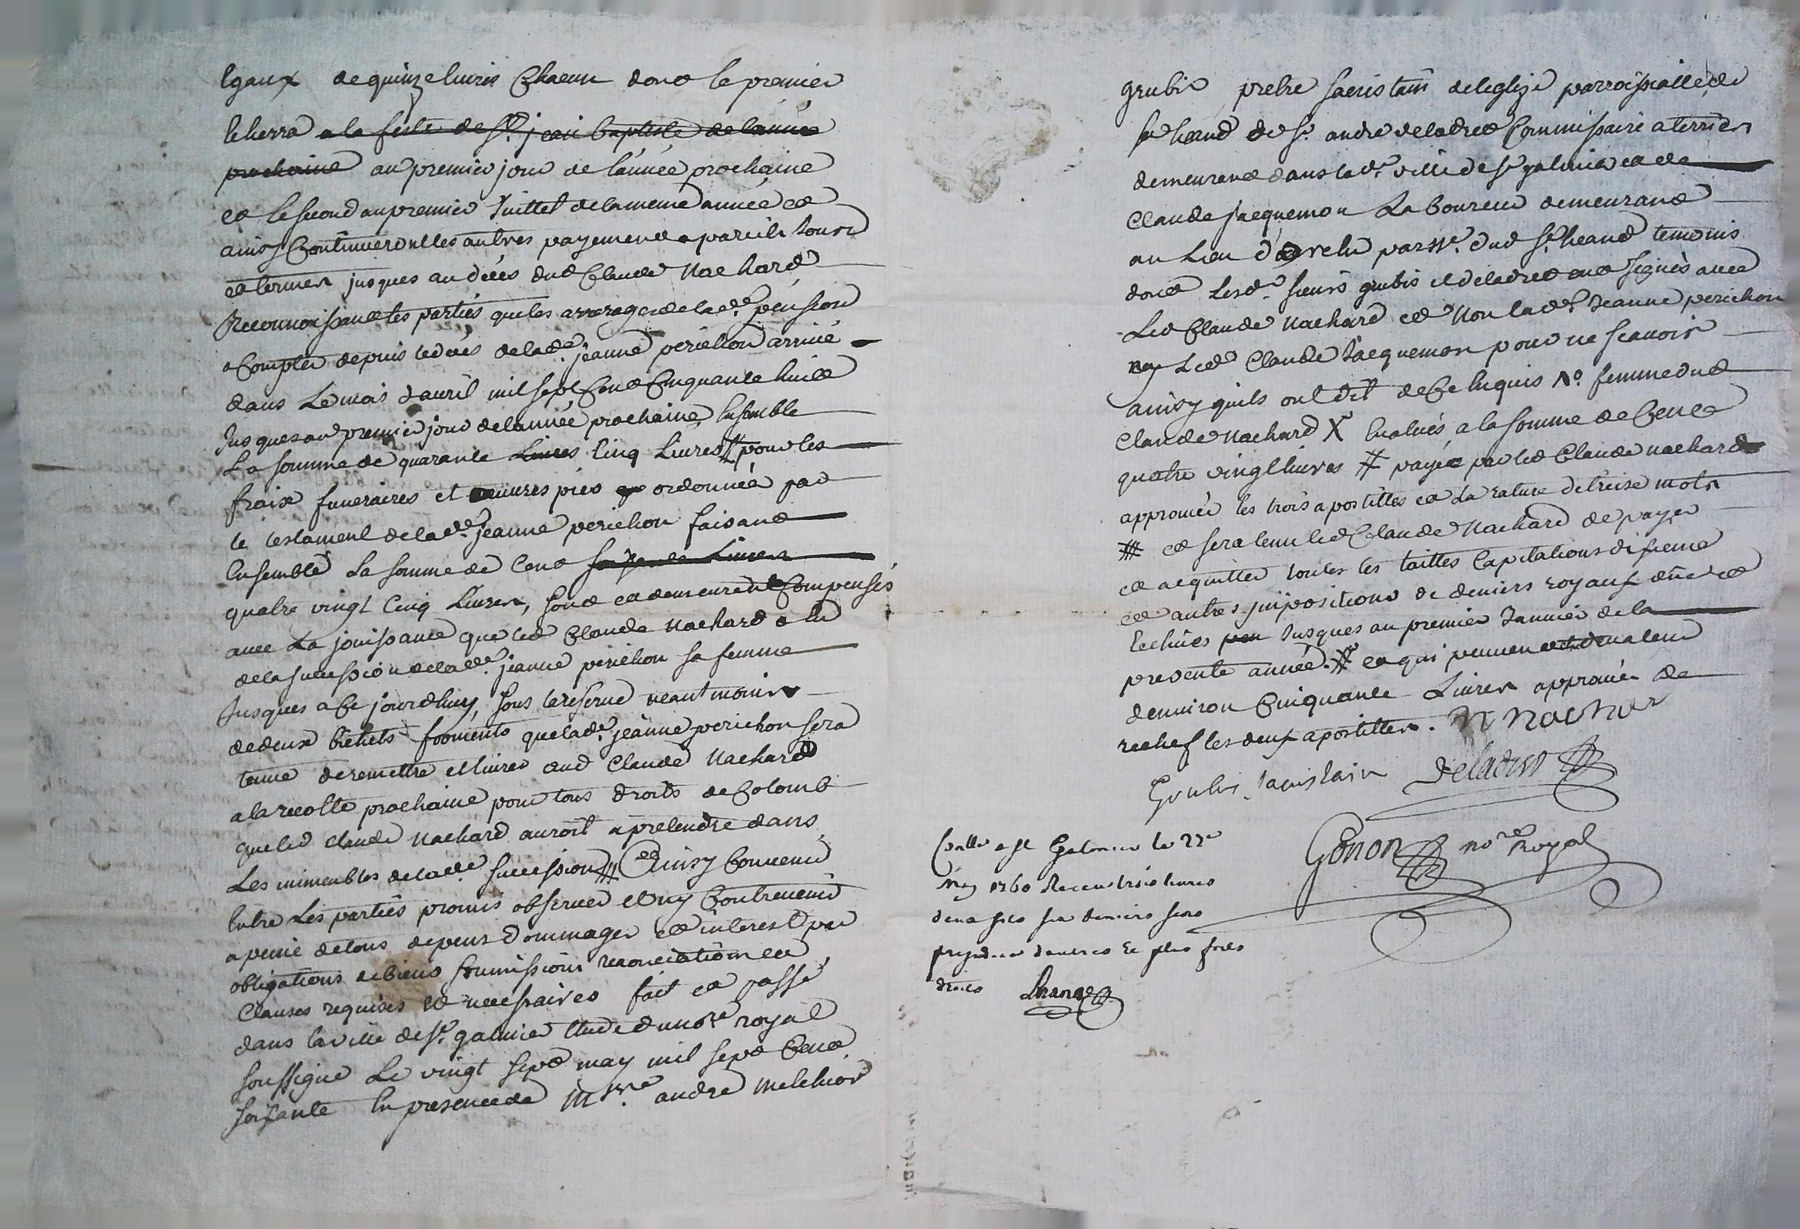 Egaux de quinze livres Chacun dont le premier
Echerra a la feste de St. jean baptiste de lannée
prochaine au premier jour de l'année prochaine
et le second au premier Juillet de la meme année et
ainsy Continueront les autres payements a pareils Jours
et termes jusques au décés dud Claude Nachard
Reconnoissant les parties que les arrerages de lade. pension
a Compter depuis le décés de lade. jeanne perichon arrivé
dans Le mois d'avril mil sept Cent Cinquante huit
Jusques au premier jour de lannée prochaine Ensemble
La somme de quarante Livres Cinq Livres # pour les
fraix funeraires et œuvres pies ordonnée par
le testament de lade. jeanne perichon faisant
Ensemble La somme de Cent soixante Livres
quatre vingt Cinq Livres, sont et demeurent Compensés
avec La jouissance que led Claude Nachard a Eu
de la succession de lade. jeanne perichon sa femme
Jusques a Ce jourdhuy, sous la reserve neantmoins
de deux bichets froments que lade. jeanne perichon sera
tenue de remettre et livrer aud Claude Nachard
a la recolte prochaine pour tous droits de Colomb
que led Claude Nachard auroit a pretendre dans
Les immeubles de lade. succession # Et Ainsy Convenu
Entre Les parties promis observer et n'y Contrevenir
a peine de tous depens Dommages et interest par
obligations de biens soumissions renonciations et
Clauses requises et necessaires fait et passé
dans la ville de St. galmier Etude du nore royal
soussigné Le vingt sept may mil sept Cent
soixante En presence de Mre. andré melchior
grubis pretre sacristain de leglise parroissialle de
St heand de Sr. andré deladret Commissaire a terriers
demeurant dans lade. ville de St galmier et de
Claude Jacquemon Laboureur demeurant
au Lieu parsse. dud St. heand temoins
dont Lesd. sieurs grubis et deladret ont signés avec
Led Claude Nachard et Non lade. Jeanne perichon
ny Led Claude Jacquemon pour ne scavoir
ainsy quils ont dit de Ce Enquis No. femme dud
Claude Nachard X Evalués a la somme de Cent
quatre vingt livres # payée par led Claude Nachard
approuvé les trois apostilles et La rature de treise mots
# et sera tenu led Claude Nachard de payer
et acquitter toutes les tailles Capitations dixieme
et autres impositions de deniers royaux
Echues Jusques au premier Janvier de la
presente année. # et qui peuvent valeur
denviron Cinquante Livres approuvé de
rechef les deux apostilles. Nachar
Grubis sacristain Deladret
Gonon nore Royal
Conllé a St Galmier le 27e
May 1760 Receu trois livres
dix sols six deniers sans
prejudice dautres et plus forts
droits